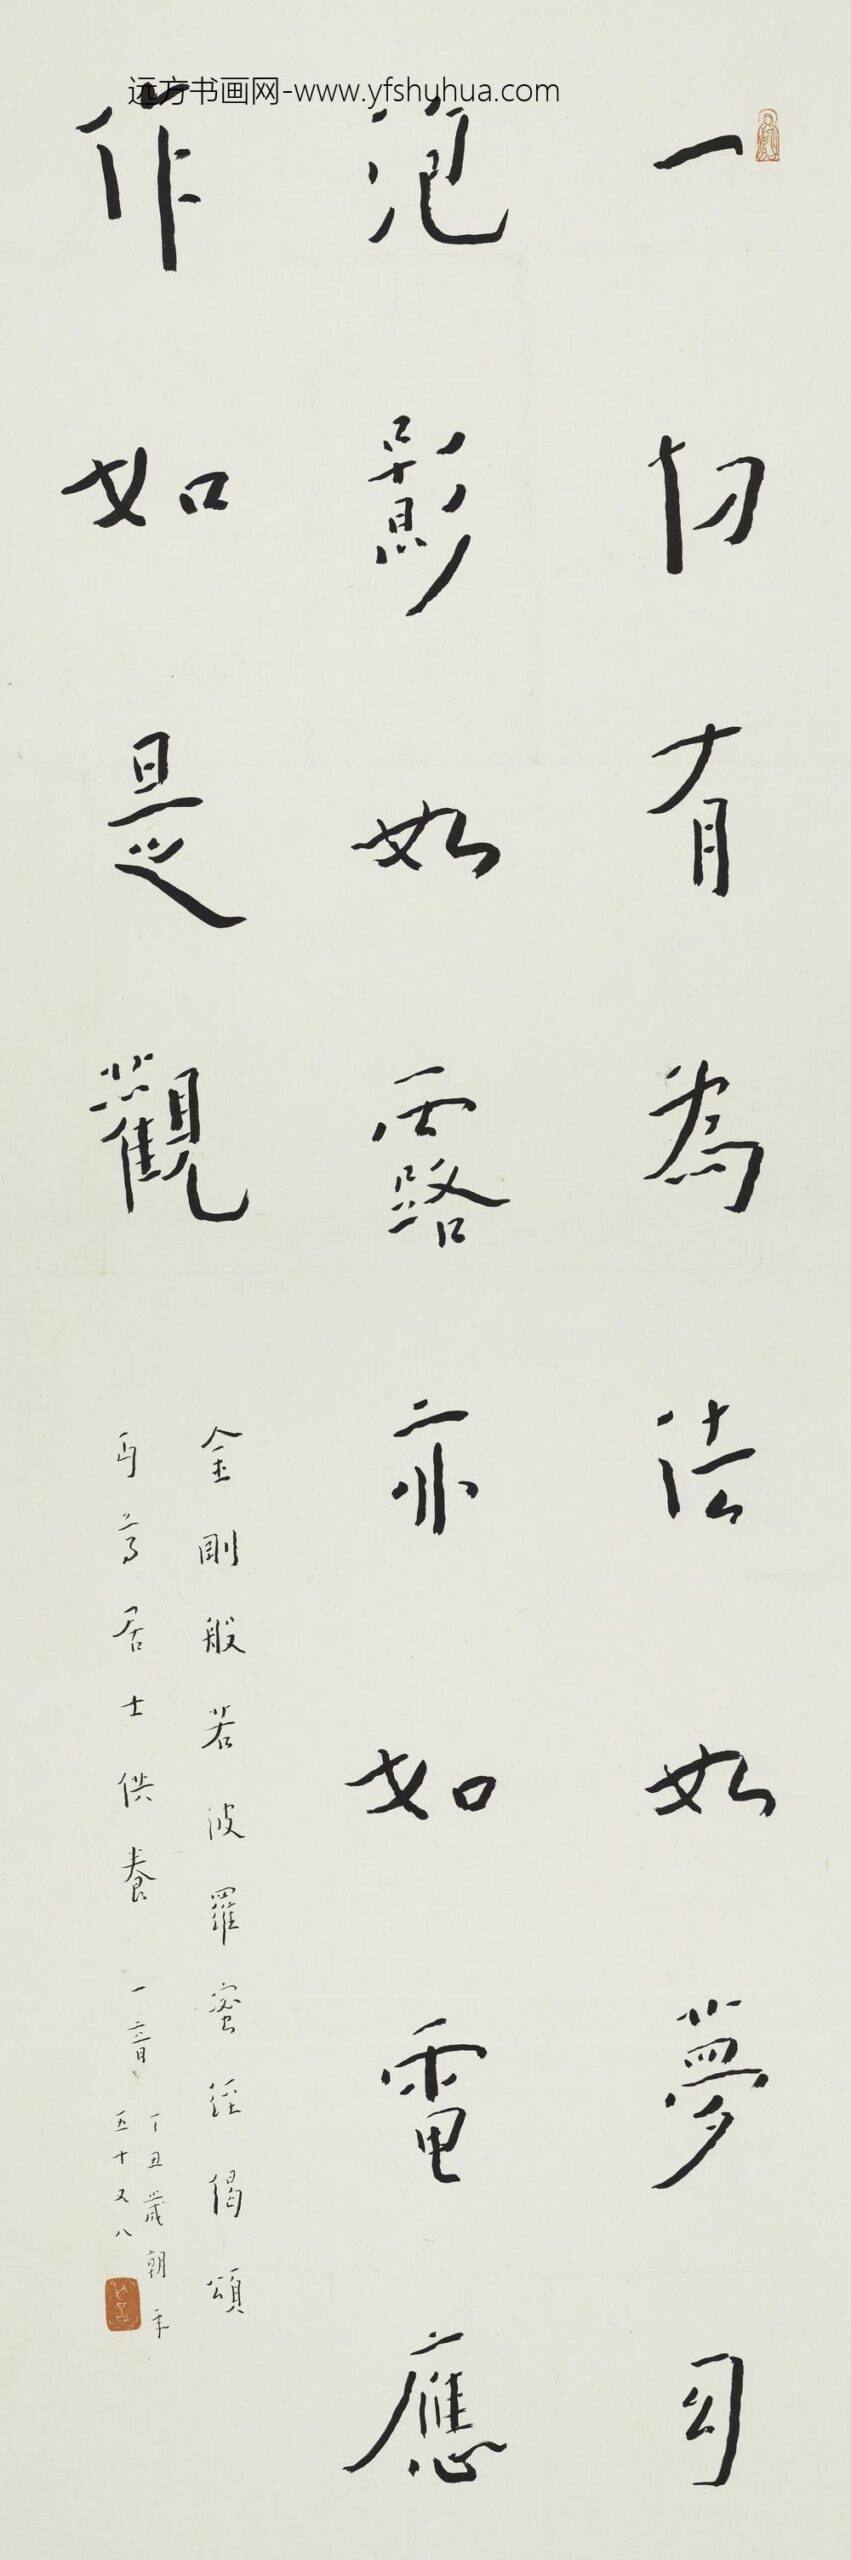 远方书画网-www.yfshuhua.com
一切有為法如夢幻
泡影如露亦如電應
作如是觀
金剛般若波羅蜜經偈頌
丏尊居士供養 一音
丁丑歲朝年
五十又八